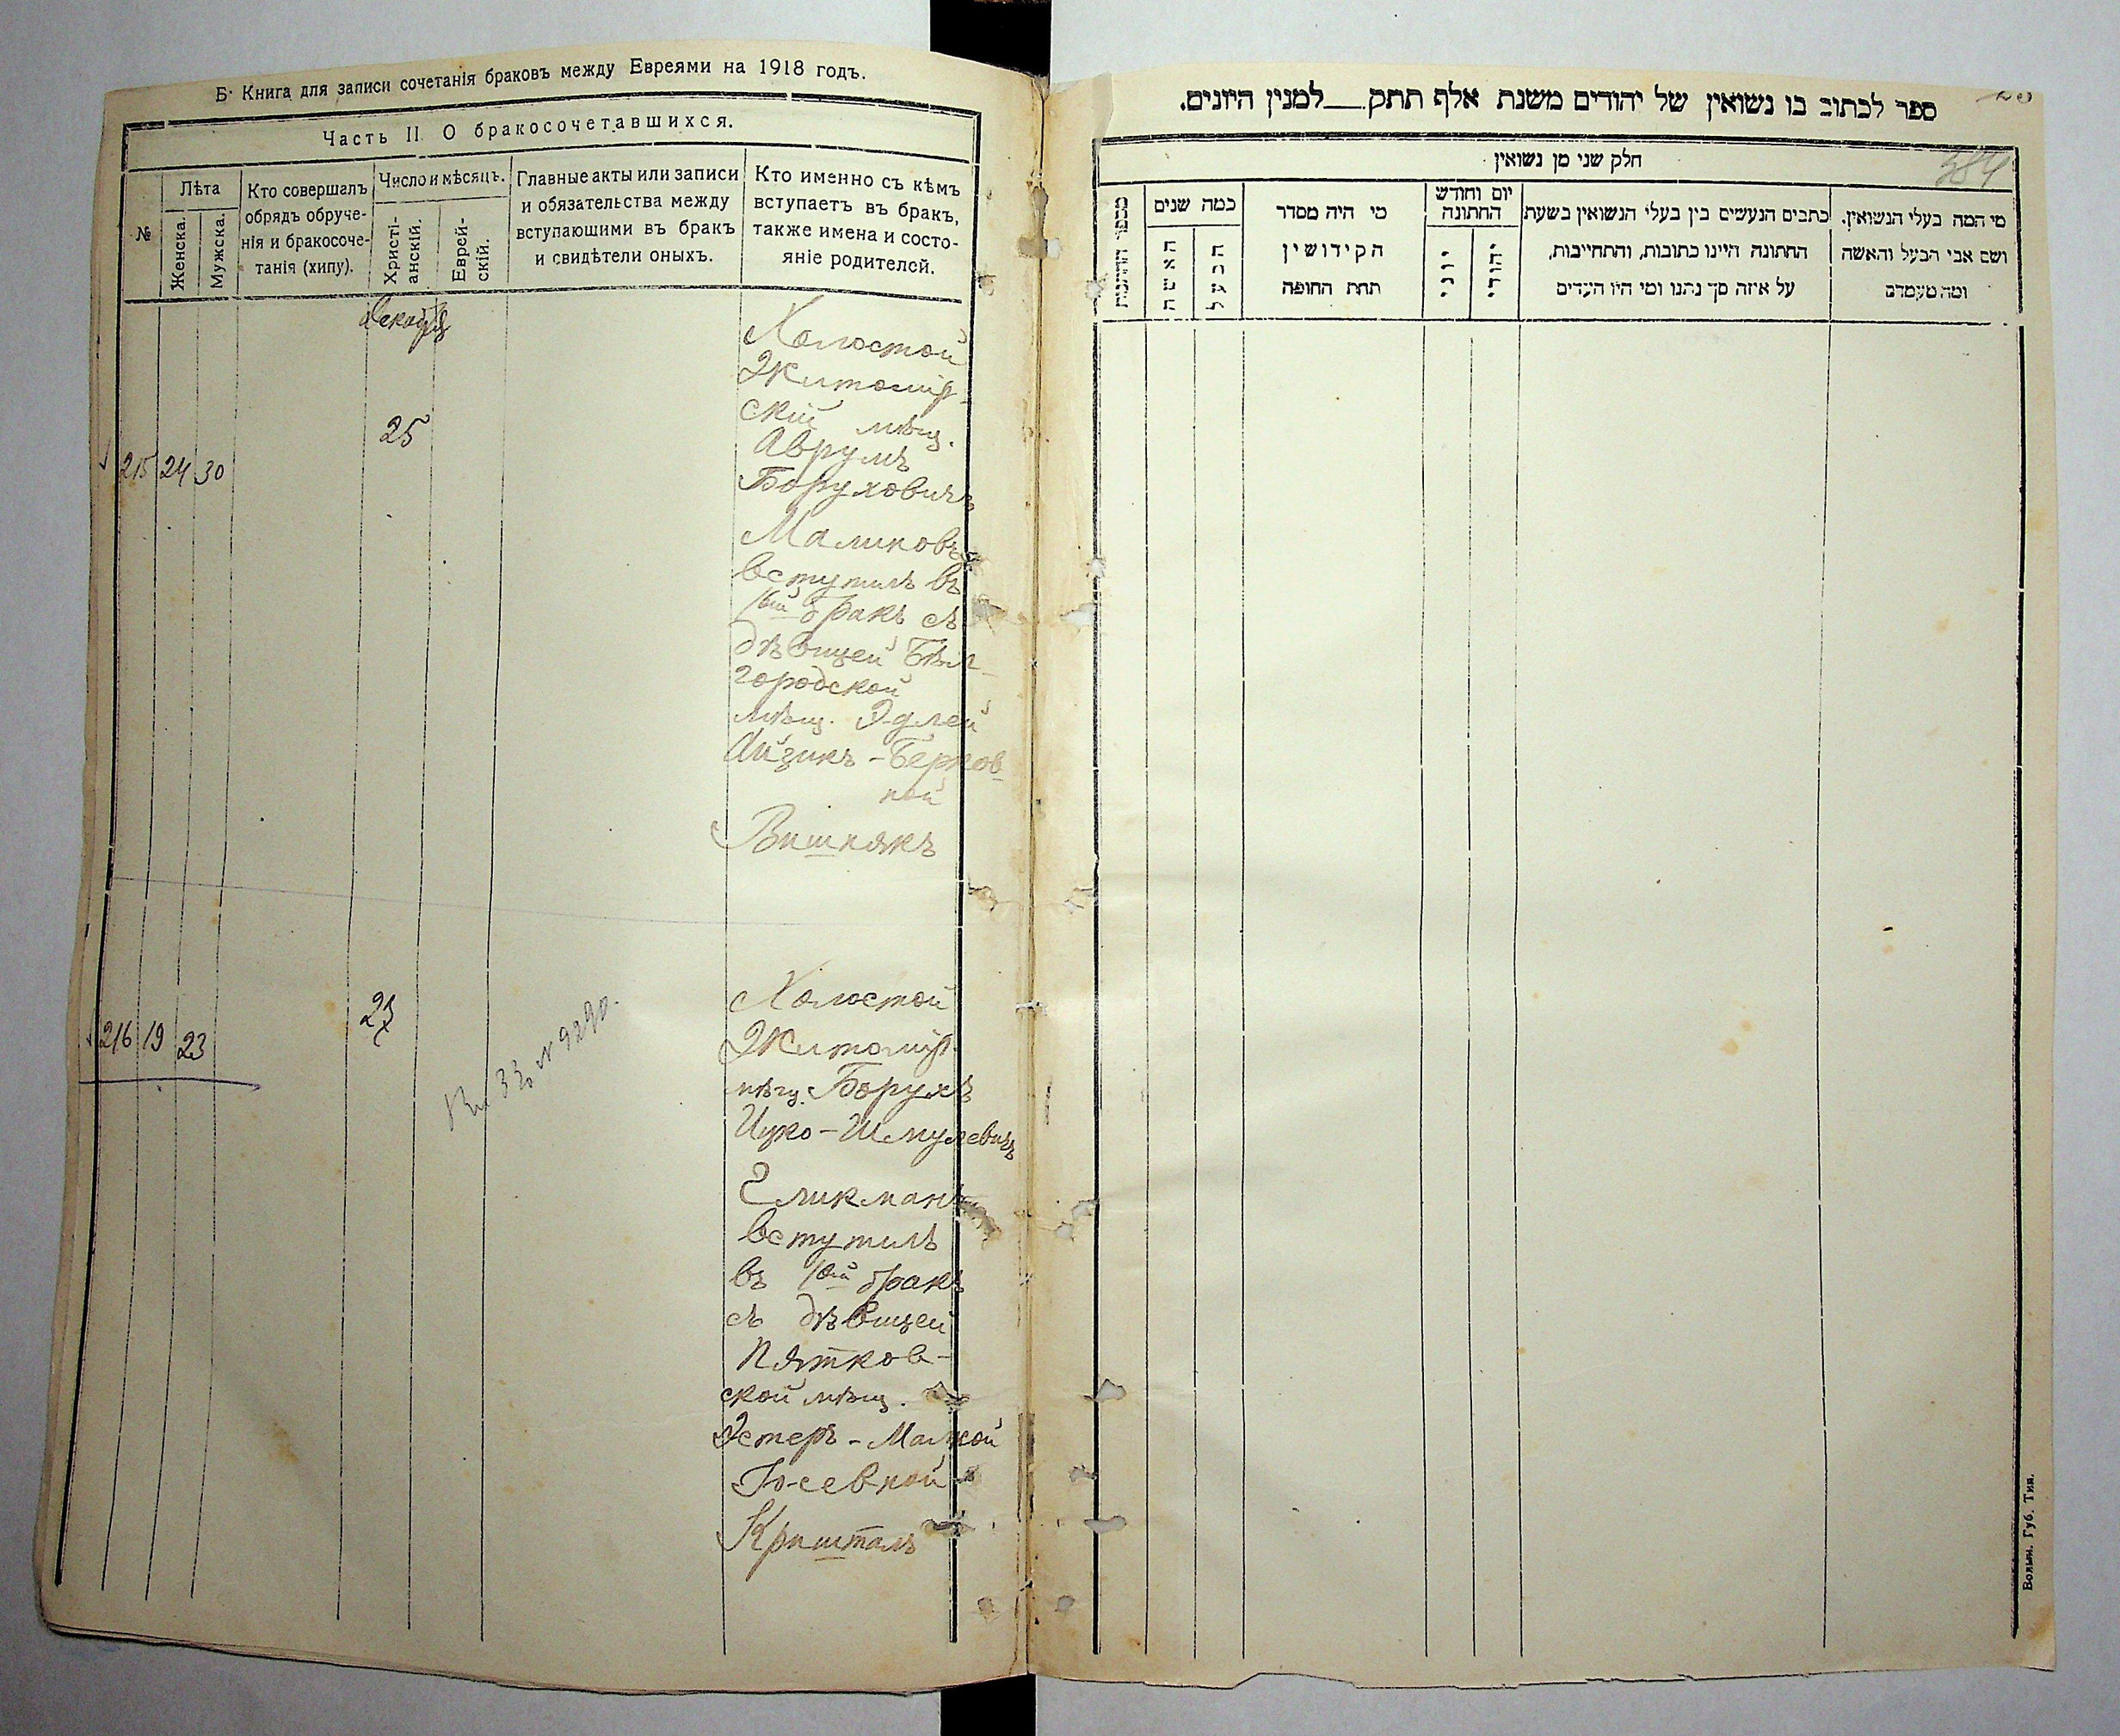 Б. Книга для записи сочетанія браковъ между Евреями на 1918 годъ.
Часть II О бракосочетавшихся.
№
Лѣта
Женска.
Мужска.
Кто совершалъ
обрядъ обруче-
нія и бракосоче-
танія (хипу).
Число и мѣсяцъ.
Христі-
анскій.
Еврей-
скій.
Главные акты или записи
и обязательства между
вступающими въ бракъ
и свидѣтели оныхъ.
Кто именно съ кѣмъ
вступаетъ въ бракъ,
также имена и состо-
яніе родителей.
215 24 30
25
Холостой
Житомір-
скій мѣщ.
Аврумъ
Боруховичъ
Маликовъ
вступилъ въ
1ый бракъ съ
дѣвицей Бѣл-
городской
мѣщ. Эдлей
Айзикъ-Берков-
ной
Вишнякъ
216 19 23
№ 9290.
Холостой
Житомір.
мѣщ. Борухъ
Ицко-Шмулевичъ
Еликманъ
вступилъ
въ 1ый бракъ
съ дѣвицей
Пятков-
ской мѣщ.
Эстеръ-Малкой
Іосевной
Кришталъ
ספר לכתוב בו נשואין של יהודים משנת אלף תתק__למנין היונים.
384
חלק שני מן נשואין
מספר החתונות
כמה שנים
האשה
הבעל
מי היה מסדר
הקידושין
תחת החופה
יום וחודש
החתונה
יוני
יהודי
כתבים הנעשים בין בעלי הנשואין בשעת
החתונה היינו כתובות, והתחייבות,
על איזה סך נתנו ומי היו העדים
מי המה בעלי הנשואין.
ושם אבי הבעל והאשה
ומה מעמדם
Волын. Губ. Тип.